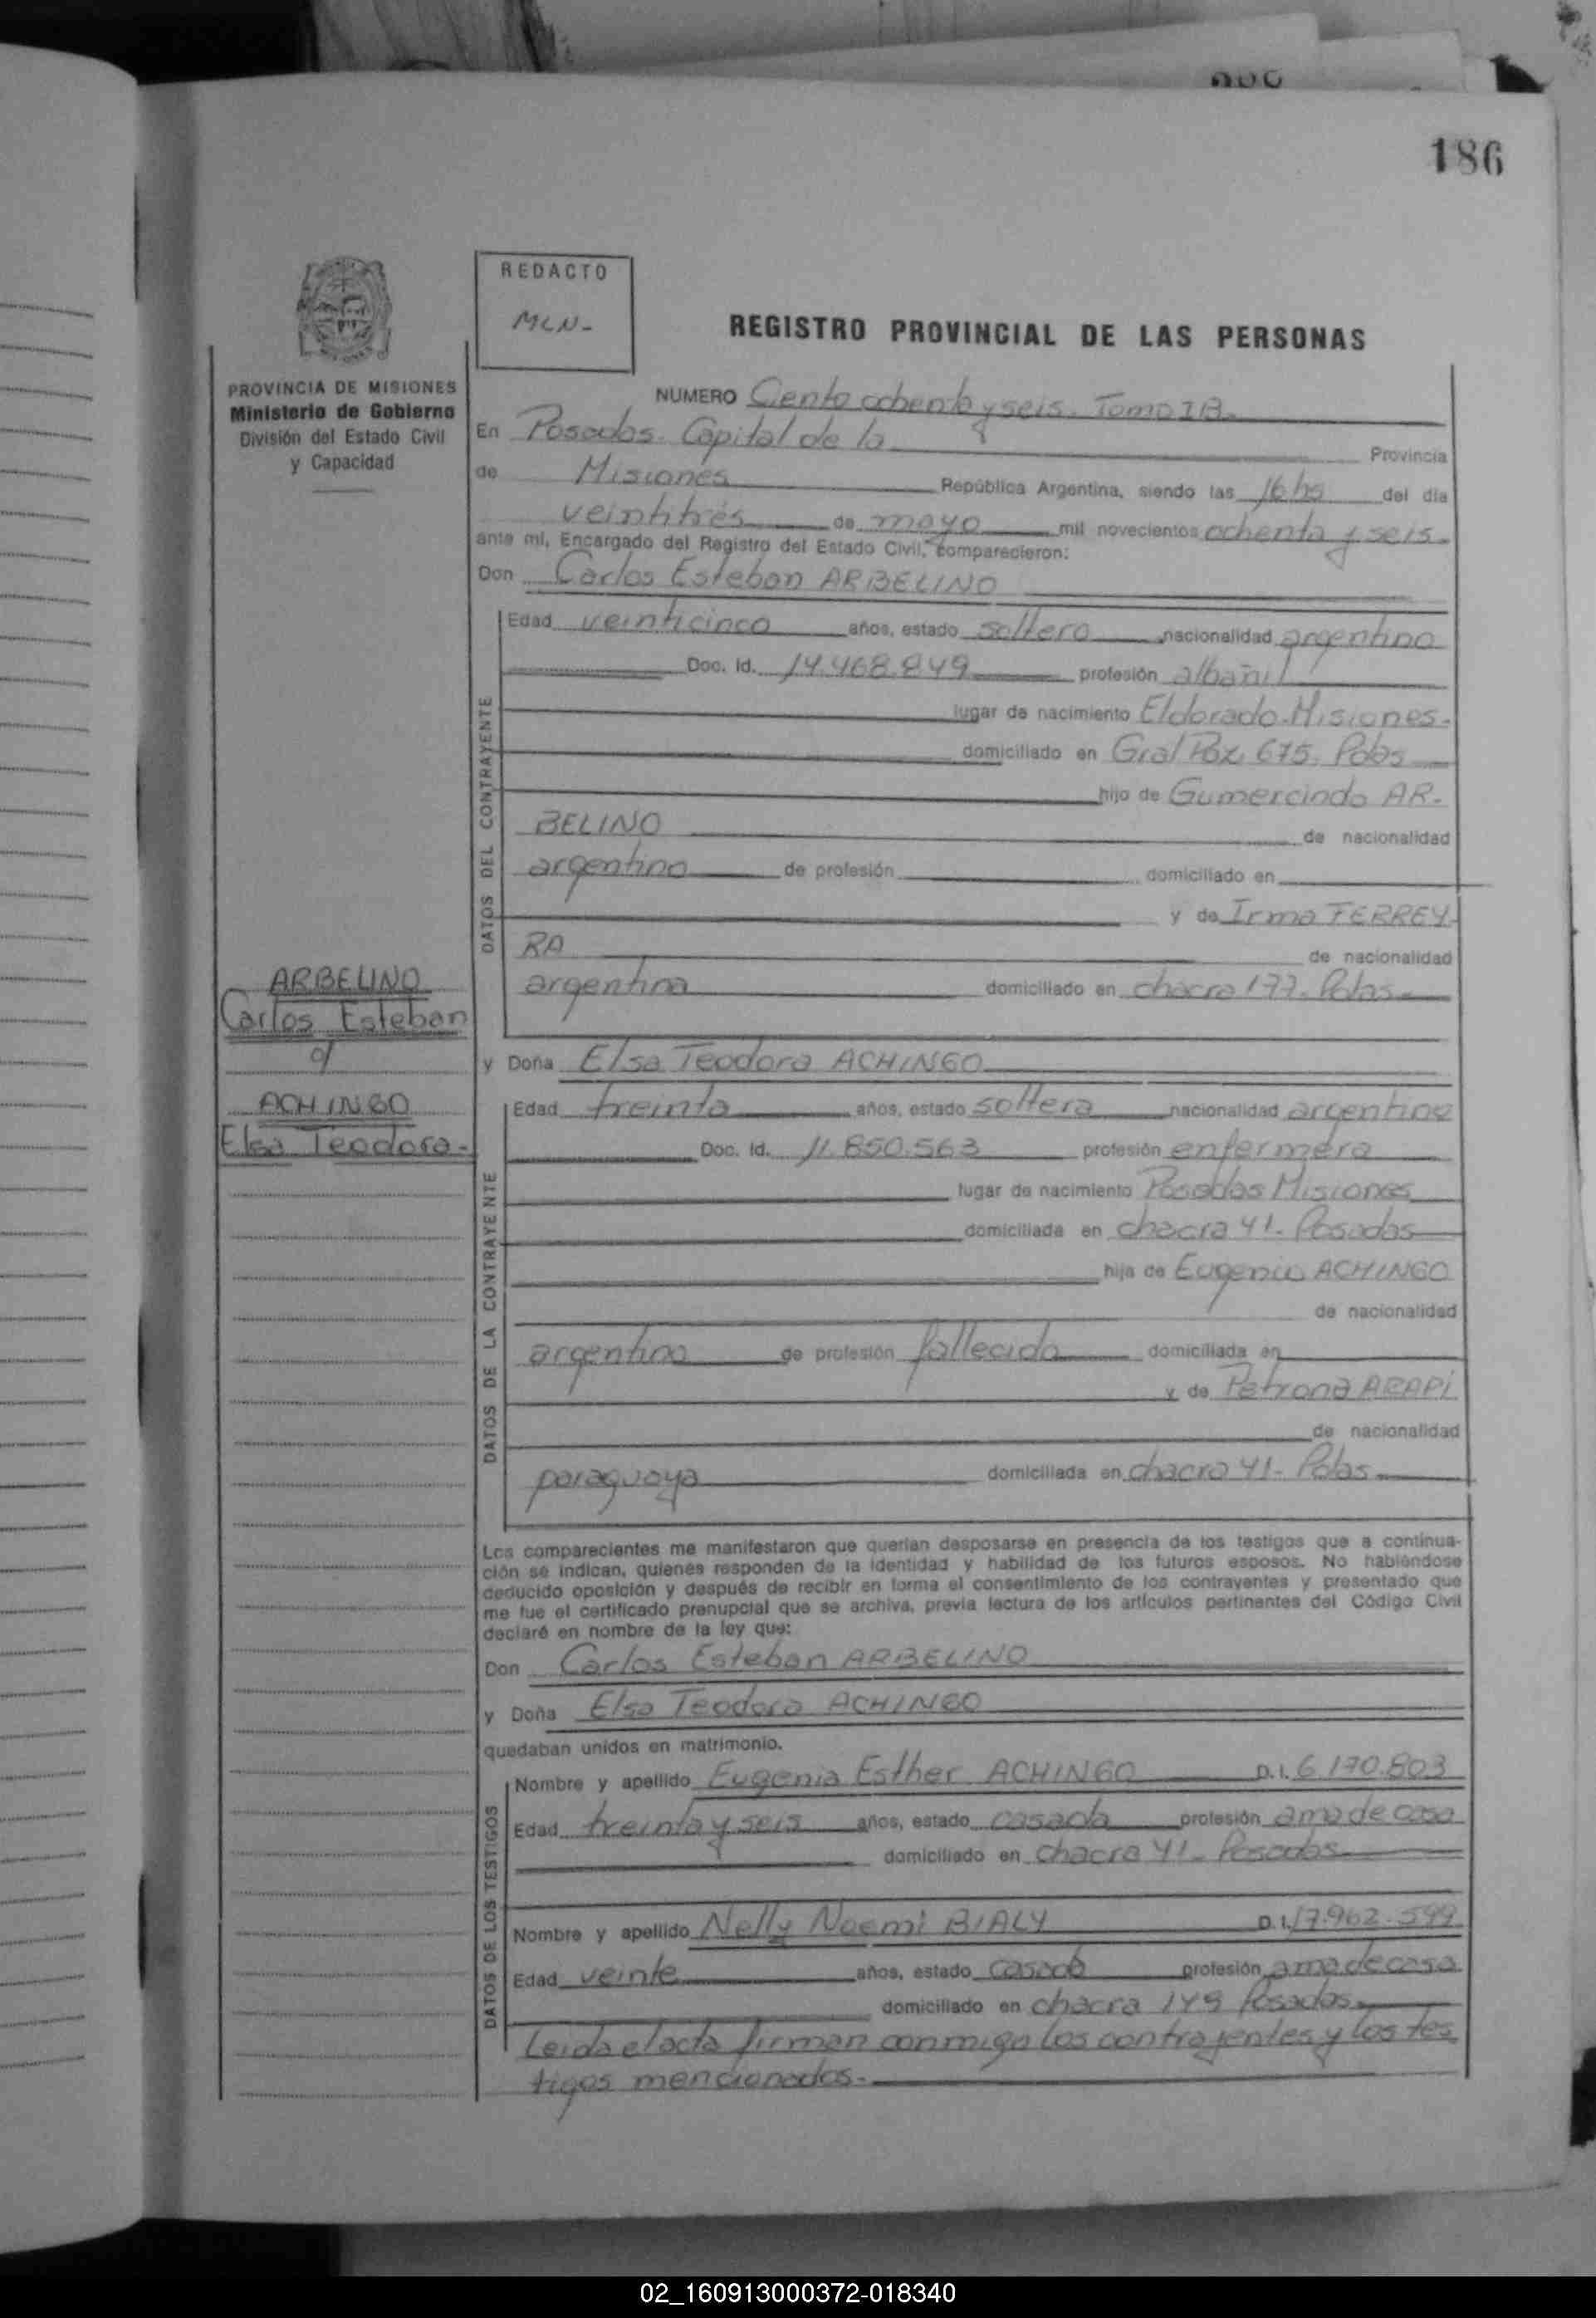 186
REDACTO
MLN-
REGISTRO PROVINCIAL DE LAS PERSONAS
PROVINCIA DE MISIONES
Ministerio de Gobierno
División del Estado Civil
y Capacidad
NUMERO Ciento ochenta y seis. Tomo IB.
En Posadas. Capital de la Provincia
de Misiones República Argentina, siendo las 16 hs del día
veintitrés de mayo mil novecientos ochenta y seis.
ante mí, Encargado del Registro del Estado Civil, comparecieron:
Don Carlos Esteban ARBELINO
DATOS DEL CONTRAYENTE
Edad veinticinco años, estado soltero nacionalidad argentino
Doc. Id. 14.468.849 profesión albañil
lugar de nacimiento Eldorado-Misiones-
domiciliado en Gral Paz 675. Pdas
hijo de Gumercindo AR-
BELINO de nacionalidad
argentino de profesión domiciliado en
y de Irma FERREY-
RA de nacionalidad
argentina domiciliado en chacra 177- Pdas-
ARBELINO
Carlos Esteban
c/
ACHINGO
Elsa Teodora-
y Doña Elsa Teodora ACHINGO
DATOS DE LA CONTRAYENTE
Edad treinta años, estado soltera nacionalidad argentina
Doc. Id. 11.850.563 profesión enfermera
lugar de nacimiento Posadas Misiones
domiciliada en chacra 41- Posadas
hija de Eugenio ACHINGO
de nacionalidad
argentino de profesión fallecido domiciliada en
y de Petrona ARAPI
de nacionalidad
paraguaya domiciliada en chacra 41- Pdas
Los comparecientes me manifestaron que querían desposarse en presencia de los testigos que a continua-
ción se indican, quienes responden de la identidad y habilidad de los futuros esposos. No habiéndose
deducido oposición y después de recibir en forma el consentimiento de los contrayentes y presentado que
me fue el certificado prenupcial que se archiva, previa lectura de los artículos pertinentes del Código Civil
declaré en nombre de la ley que:
Don Carlos Esteban ARBELINO
y Doña Elsa Teodora ACHINGO
quedaban unidos en matrimonio.
DATOS DE LOS TESTIGOS
Nombre y apellido Eugenia Esther ACHINGO D.I. 6.170.803
Edad treinta y seis años, estado casada profesión ama de casa
domiciliado en chacra 41- Posadas
Nombre y apellido Nelly Noemi BIALY D.I. 17.962.599
Edad veinte años, estado casada profesión ama de casa
domiciliado en chacra 149 Posadas.
Leida el acta firman conmigo los contrayentes y los tes
tigos mencionados.-
02_160913000372-018340